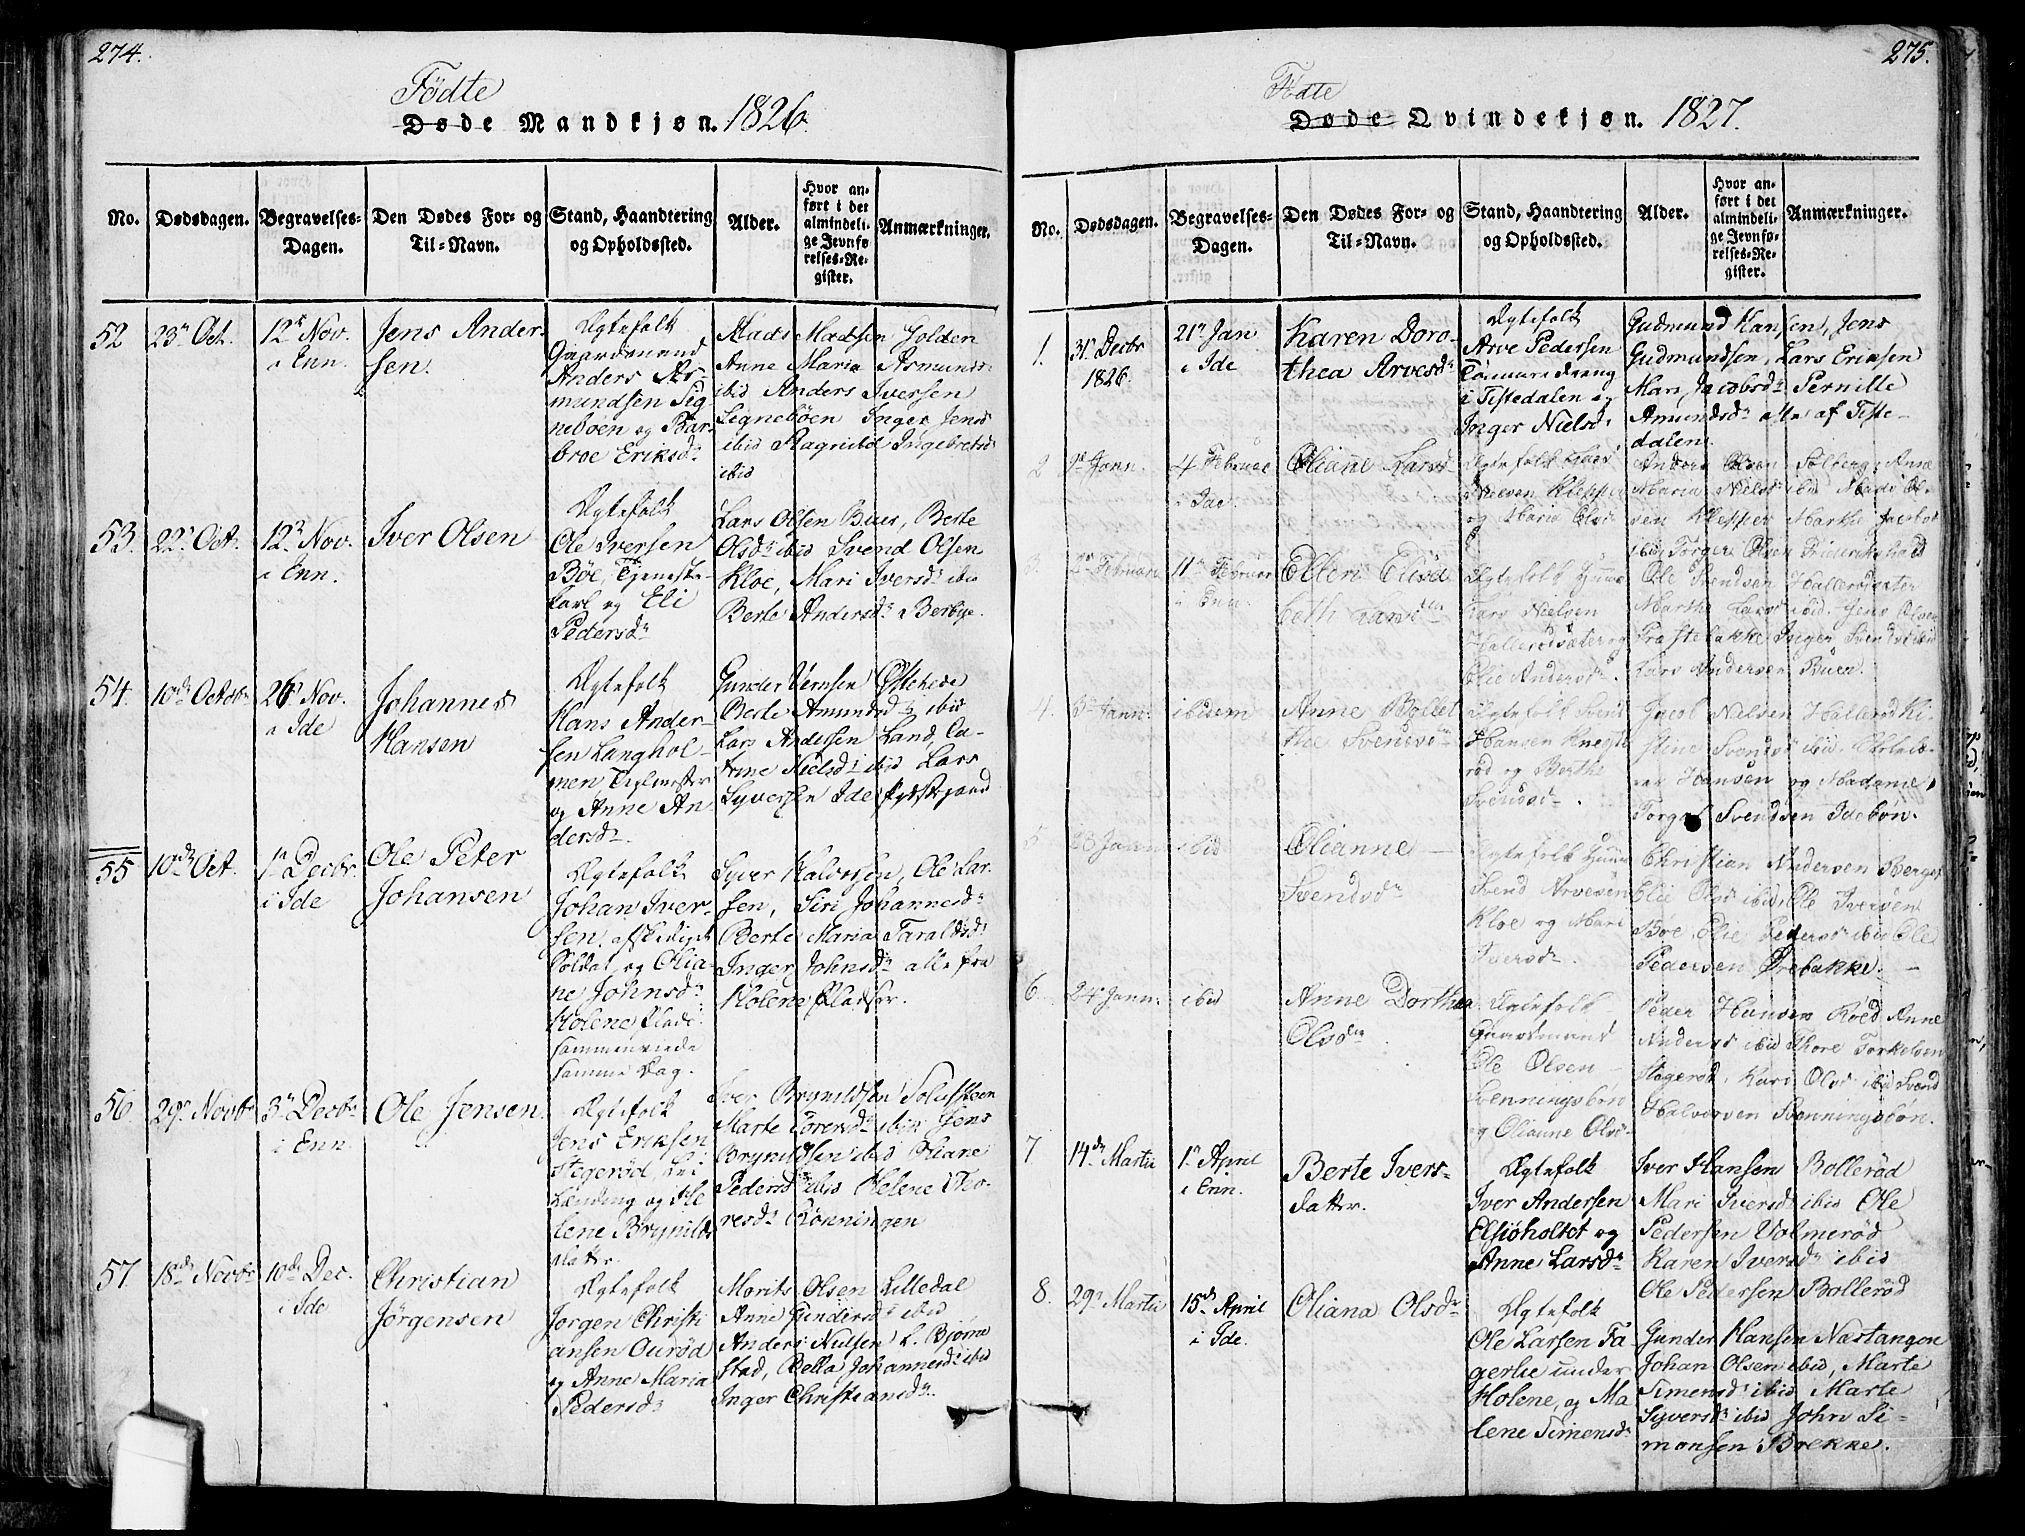 274.
Födte
Døde Mandkjøn. 1826.
No.
Dødsdagen.
Begravelses-
Dagen.
Den Dødes For- og
Til-Navn.
Stand, Haandtering
og Opholdssted.
Alder.
Hvor an-
ført i det
almindeli-
ge Jevnfø-
relses-Re-
gister.
Anmærkninger.
52
23r Oct.
12t Nov.
i Enn.
Jens Ander-
sen.
Ægtefolk
Gaardmand
Anders As-
mundsen Sig-
neböen og Bar-
broe Eriksdr
Mads Madsen Holden
Anne Maria Asmundsdr
ibid Anders Iversen
Signeböen Inger Jensdr
ibid Ragnild Ingebretsdr
ibid
53.
22r Oct.
12r Nov.
i Enn.
Iver Olsen
Ægtefolk
Ole Iversen
Böe, Tjeneste-
karl og Eli
Pedersdr
Lars Olsen Buer, Berte
Olsdr ibid Svend Olsen
Kloe, Mari Iversdr ibid
Berte Andersdr Berbye.
54.
10de Octobr
26r Nov.
i Ide
Johannes
Hansen
Ægtefolk
Hans Ander-
sen Langhol-
men Teglmester
og Anne An-
dersdr.
Gunder Vernsen
Berte Amundsdr ibid
Lars Andersen Sand, Ca-
trine Nielsdr ibid Lars
Syversen Ide
55
10de Oct.
1r Decbr.
i Ide
Ole Peter
Johansen
Ægtefolk
Johan Iver-
sen, afskediget
Soldat og Olia-
ne Johnsdr
Holene Plads.
sammenviede
samme Dag.
Syver Halvorsen, Ole Lar-
sen, Siri Johannesdr
Berte Maria Taraldsdr
Inger Johnsdr alle fra
Holene Pladser.
56
29r Novbr
3r Decbr
i Enn.
Ole Jensen.
Ægtefolk
Jens Eriksen
Stegeröd,
og He-
lene Brynilds
datter.
Iver Brynildsen
Marte Torersdr ibid Jens
Brynildsen ibid Oliane
Pedersdr ibid Helene Tho-
resdr Rönningen
57.
18de Novbr
10de Dec.
i Ide
Christian
Jörgensen
Ægtefolk
Jörgen Christi-
ansen Ouröd
og Anne Maria
Pedersdr
Morits Olsen Lilledal
Anne Gundersdr ibid
Anders Nilsen L. Bjørne
stad, Bolla Johannesdr ibid
Inger Christiansdr.
275.
Födte
Døde Qvindekjøn. 1827.
No.
Dødsdagen.
Begravelses-
Dagen.
Den Dødes For- og
Til-Navn.
Stand, Haandtering
og Opholdssted.
Alder.
Hvor an-
ført i det
almindeli-
ge Jevnfø-
relses-Re-
gister.
Anmærkninger.
1.
31r Decbr
1826
21r Jan
i Ide
Karen Doro-
thea Arvesdr
Ægtefolk
Arve Pedersen
i Tistedalen og
Inger Nielsdr
Gudmund Hansen, Jens
Gudmundsen, Lars Eriksen
Mari Jacobsdr Pernille
Amundsdr alle af Tiste-
dalen.
2
1r Jann.
4 Februar
i Ide.
Oliane Larsdr
Ægtefolk Lars
Nielsen Klepper
og Maria Olsdr
Anders Olsen Solberg, Anne
Maria Nielsdr ibid Mads Ol-
sen Klepper Marthe Jacobsdr
ibid, Torger Olsen Friderikshald
3.
2r Februari
11r Februar
i Enn.
Ellen Elisa
beth Larsdr
Ægtefolk
Lars Nielsen
Hallerödsæter og
Elie Andersdr.
Ole Svendsen Hallerödsæter
Marthe Larsdr ibid. Jens Olsen
Præstebakke Inger Svendsdr ibid
Lars Andersen Buer.
4.
6r Jann.
ibidem
Anne Bollet
the Svendsdr
Ægtefolk Svend
Hansen
röd og Berthe
Svendsdr.
Jacob Nielsen Halleröd Ki-
stine Svendsdr ibid,
Hansen og Madame
Torger Svendsen Idebön.
5
23 Jann
ibid
Olianne
Svendsdr
Ægtefolk
Svend Arvesen
Kloe og Mari
Iversdr.
Christian Andersen Berget
Elie Olsdr ibid, Ole Iversen
Böe, Elie Pedersdr ibid Ole
Pedersen Ørebakke.
6
24r Jann.
ibid
Anne Dorthea
Olsdr
Ægtefolk
Gaardmand
Ole Olsen
Svenningsbön
og Olianne Olsdr
Peder Hansen Röed Anne
Andersdr ibid Thore Torkelsen
Stegeröd, Kari Olsdr ibid Svend
Halvorsen Svenningsbön.
7
14de Martii
1r April
i Enn.
Berte Ivers-
datter.
Ægtefolk
Iver Andersen
Elsiöholtet og
Anne Larsdr
Iver Hansen Bolleröd
Mari Iversdr ibid Ole
Pedersen Volmeröd
Karen Iversdr ibid
Ole Pedersen Bolleröd
8.
29r Martii
15de April
i Ide.
Oliana Olsdr
Ægtefolk
Ole Larsen Fa
gerlie under
Holene, og Ma
lene Simensdr
Gunder Hansen Næstangen
Johan Olsen ibid, Marte
Simensdr ibid Marte
Syversdr ibid John Si-
monsen Brekke.